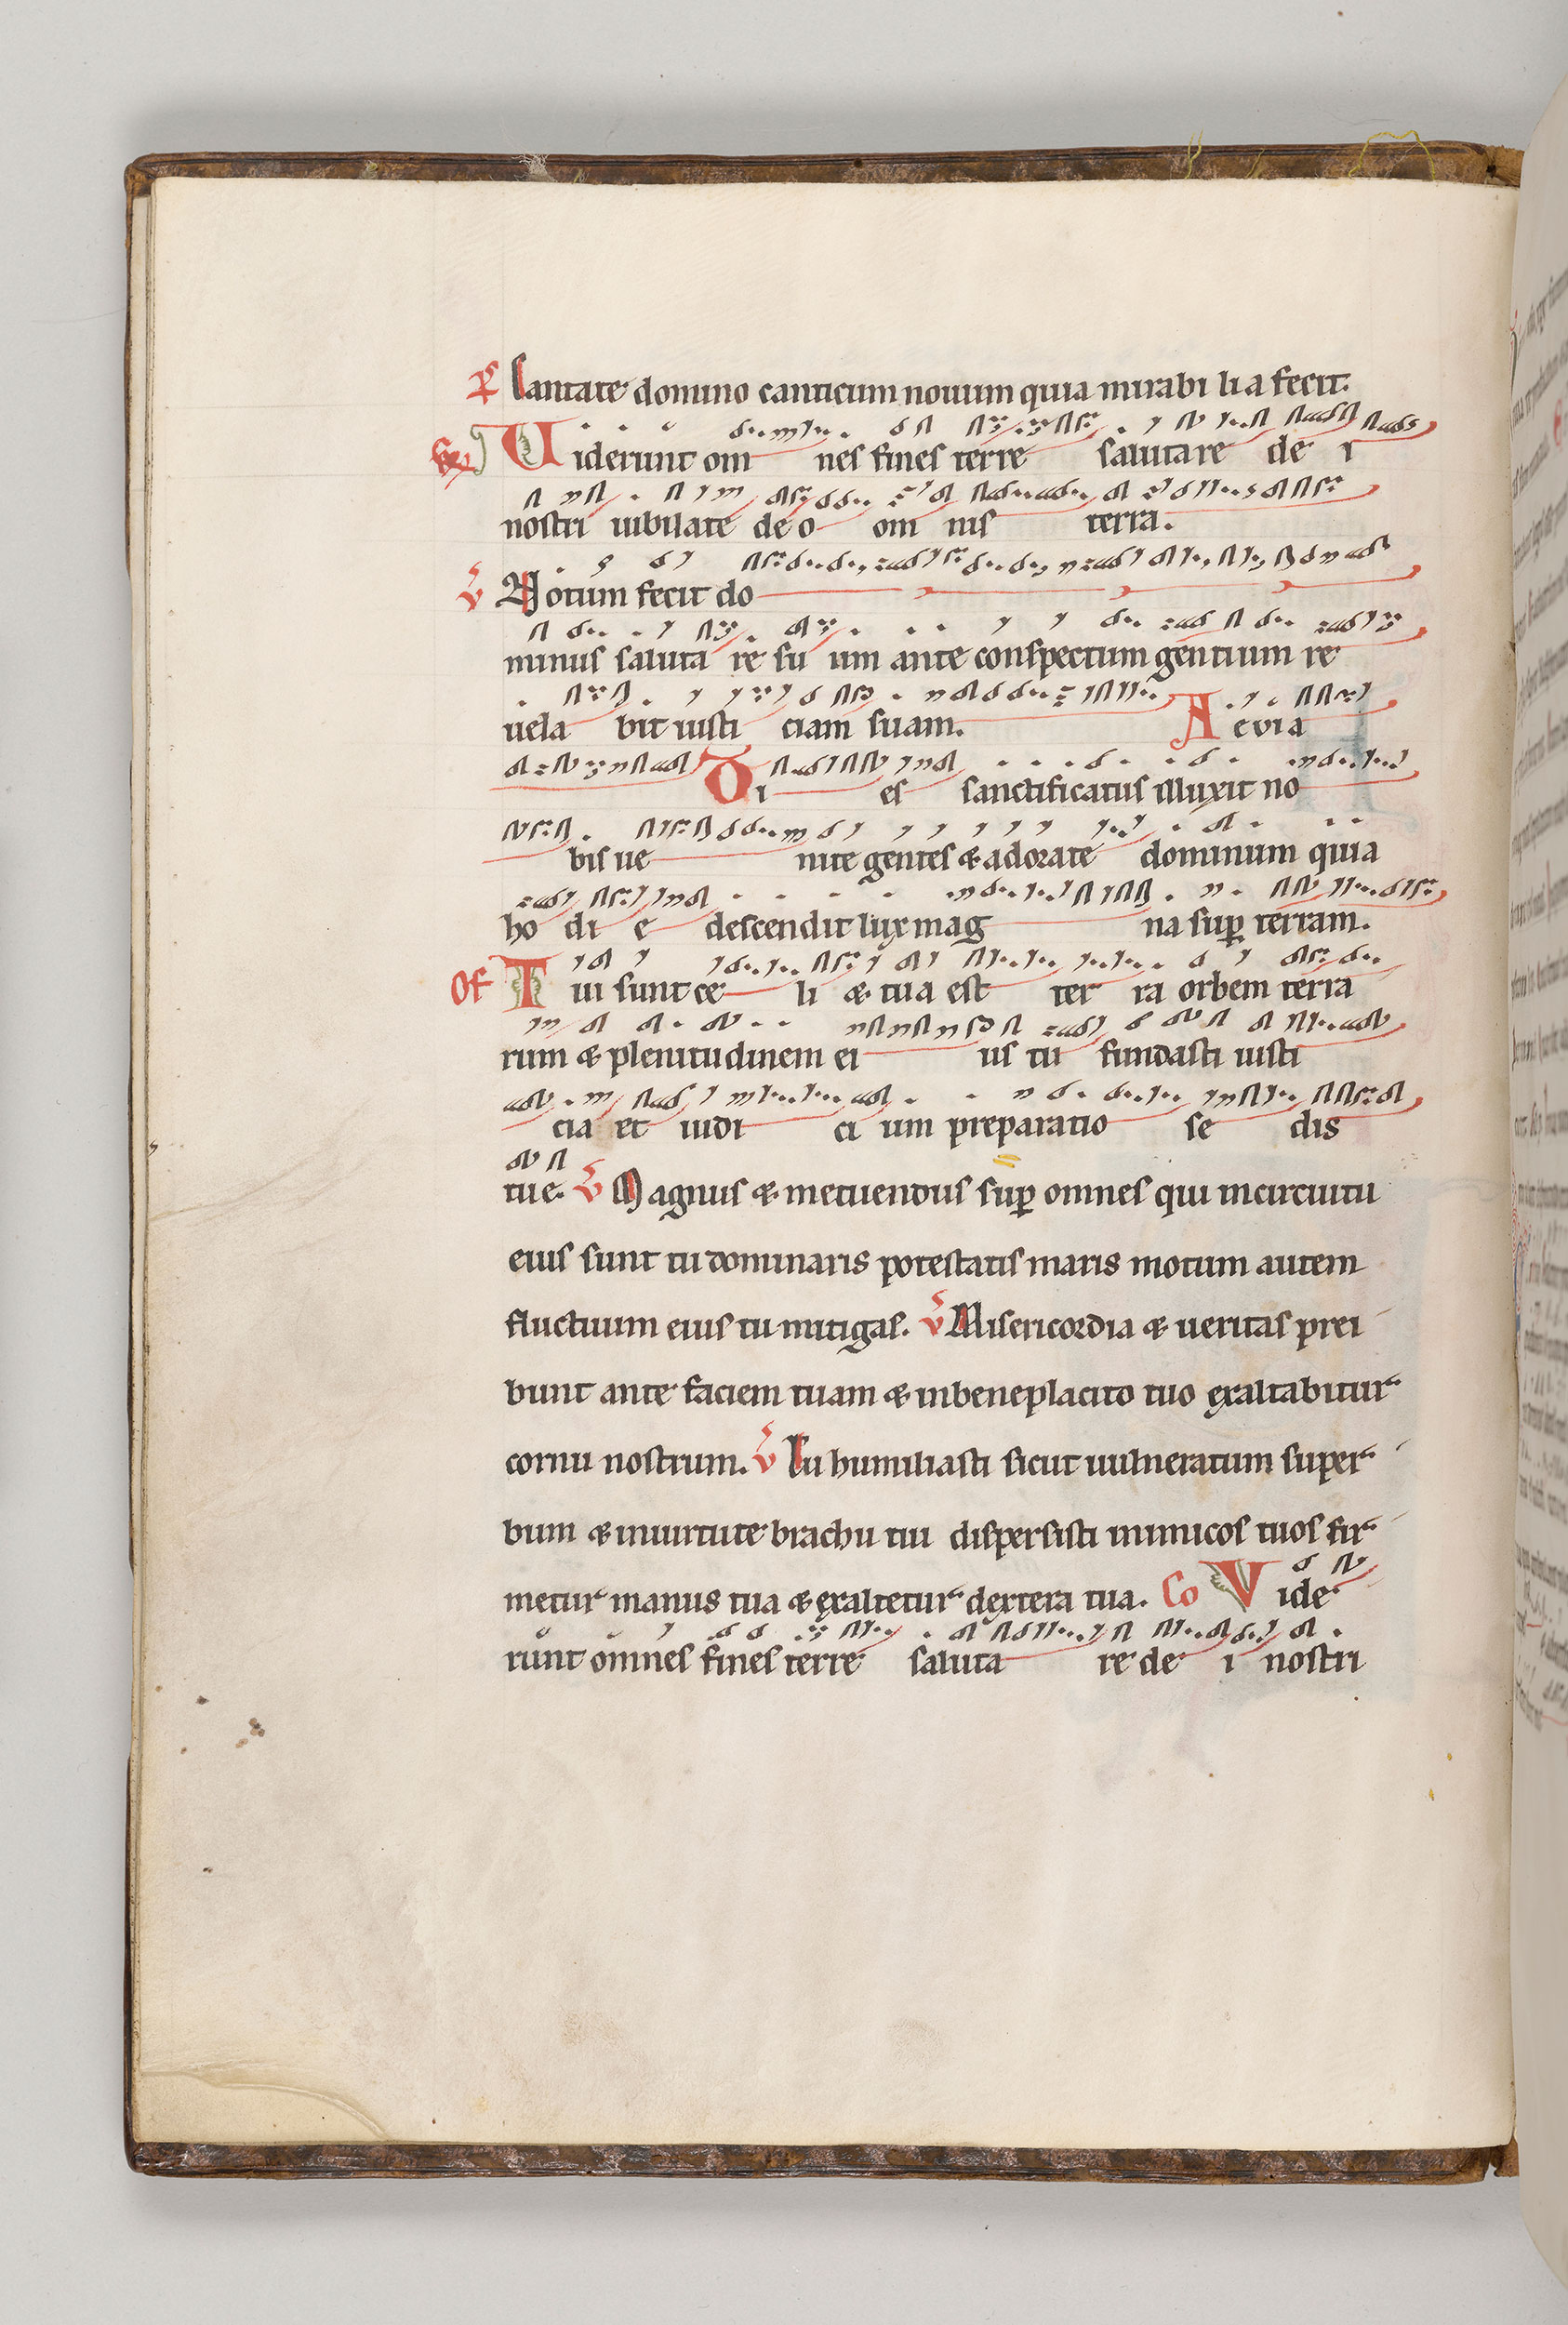 Ps Cantate domino canticum nouum quia mirabi li a fecit.
Gr Uiderunt om nes fines terre salutare de i
nostri iubilate de o om nis terra.
V Notum fecit do
minus saluta re su um ante conspectum gentium re
uela bit iusti ciam suam. A evia
Di es sanctificatus illuxit no
bis ue nite gentes & adorate dominum quia
ho di e descendit lux mag na sup terram.
Of Tui sunt ce li & tua est ter ra orbem terra
rum & plenitudinem ei us tu fundasti iusti
cia et iudi ci um preparatio se dis
tue. V Magnus & metuendus sup omnes qui incircuitu
eius sunt tu dominaris potestatis maris motum autem
fluctuum eius tu mitigas. V Misericordia & ueritas prei
bunt ante faciem tuam & inbeneplacito tuo exaltabitur
cornu nostrum. V Tu humiliasti sicut uulneratum super
bum & inuirtute brachii tui dispersisti inimicos tuos fir
metur manus tua & exaltetur dextera tua. Co Vide
runt omnes fines terre saluta re de i nostri